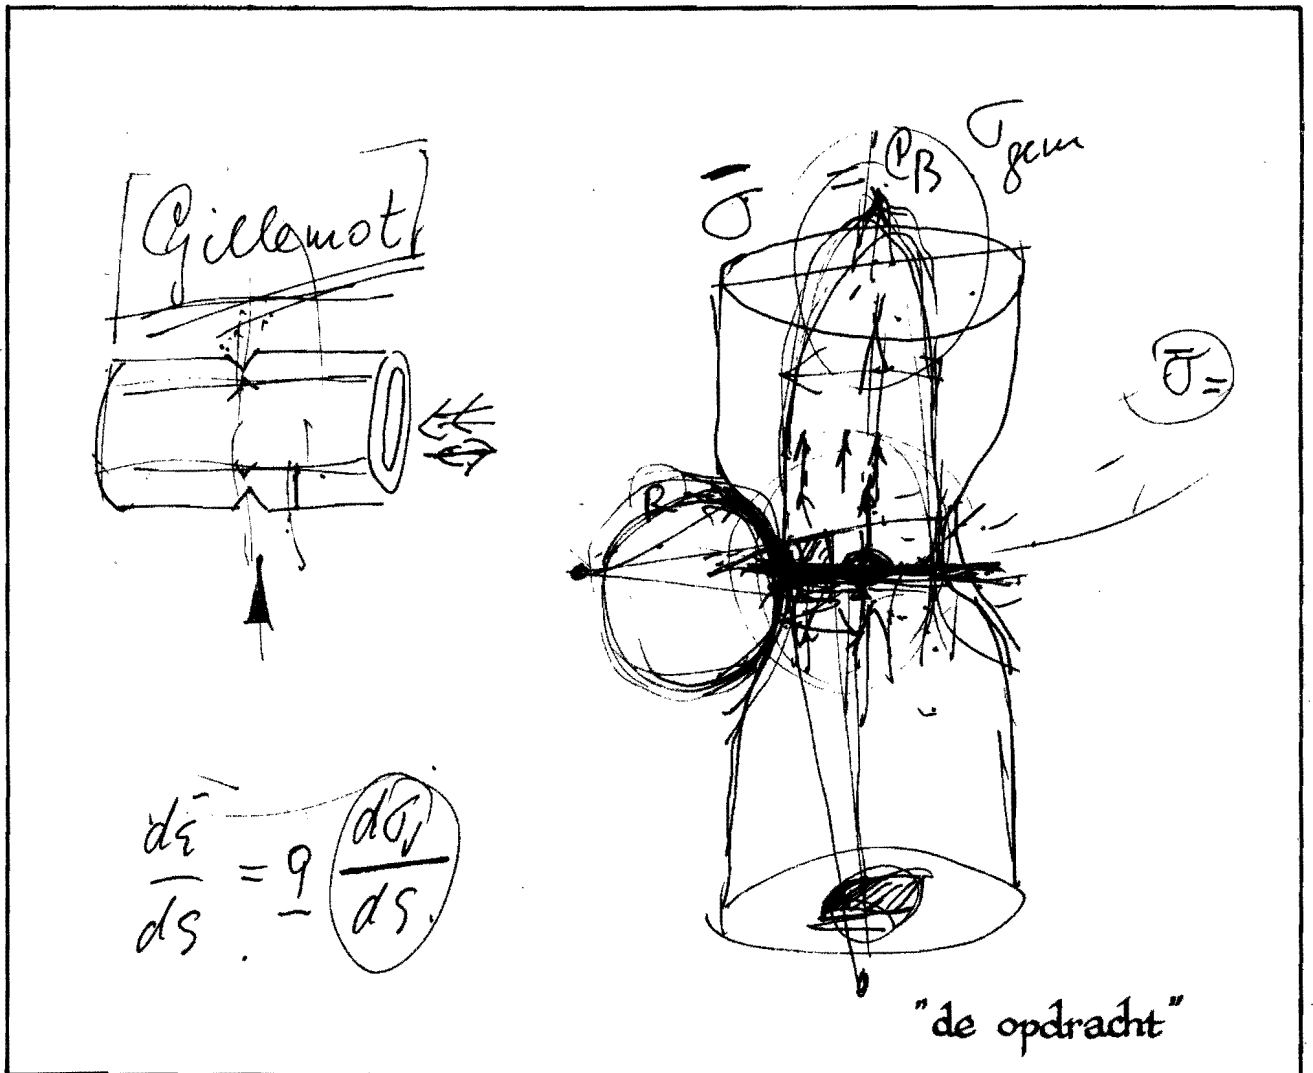 Gillemot
σ̄ = ρB σgem
R
σ̄ =
dε̄/ds = q dσ/ds
"de opdracht"